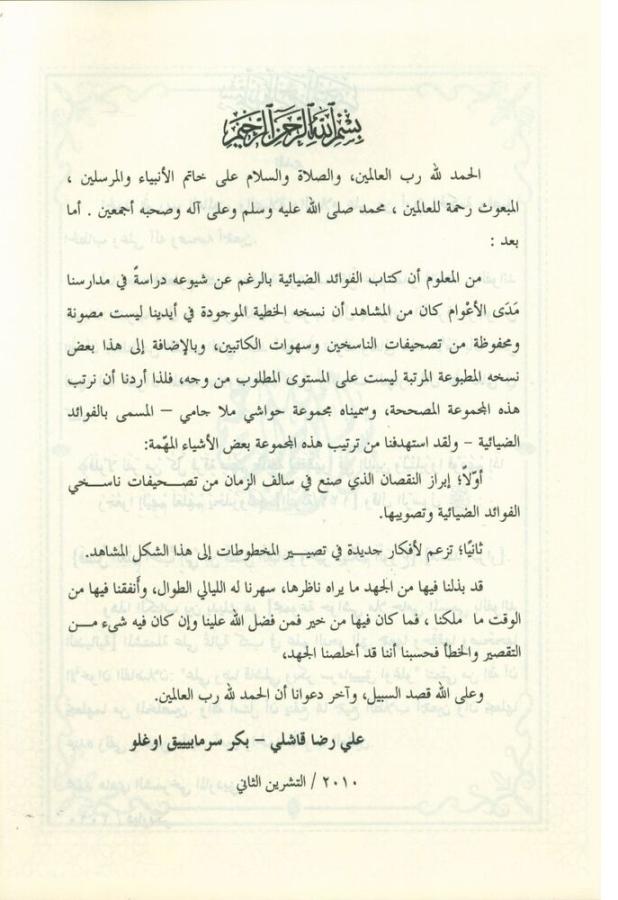 بسم الله الرحمن الرحيم
الحمد لله رب العالمين، والصلاة والسلام على خاتم الأنبياء والمرسلين ،
المبعوث رحمة للعالمين ، محمد صلى الله عليه وسلم وعلى آله وصحبه أجمعين . أما
بعد :
من المعلوم أن كتاب الفوائد الضيائية بالرغم عن شيوعه دراسةً في مدارسنا
مَدَى الأعْوام كان من المشاهد أن نسخه الخطية الموجودة في أيدينا ليست مصونة
ومحفوظة من تصحيفات الناسخين وسهوات الكاتبين، وبالإضافة إلى هذا بعض
نسخه المطبوعة المرتبة ليست على المستوى المطلوب من وجه، فلذا أردنا أن نرتب
هذه المجموعة المصححة، وسميناه مجموعة حواشي ملا جامي – المسمى بالفوائد
الضيائية – ولقد استهدفنا من ترتيب هذه المجموعة بعض الأشياء المهّمة:
أوّلاً؛ إبراز النقصان الذي صنع في سالف الزمان من تصحيفات ناسخي
الفوائد الضيائية وتصويبها.
ثانيًا؛ تزعم لأفكار جديدة في تصيير المخطوطات إلى هذا الشكل المشاهد.
قد بذلنا فيها من الجهد ما يراه ناظرها، سهرنا له الليالي الطوال، وأَنفقنا فيها من
الوقت ما ملكنا ، فما كان فيها من خير فمن فضل الله علينا وإن كان فيه شىء من
التقصير والخطأ فحسبنا أننا قد أخلصنا الجهد،
وعلى الله قصد السبيل، وآخر دعوانا أن الحمد لله رب العالمين.
علي رضا قاشلي – بكر سرمابييق اوغلو
٢٠١٠ / التشرين الثاني